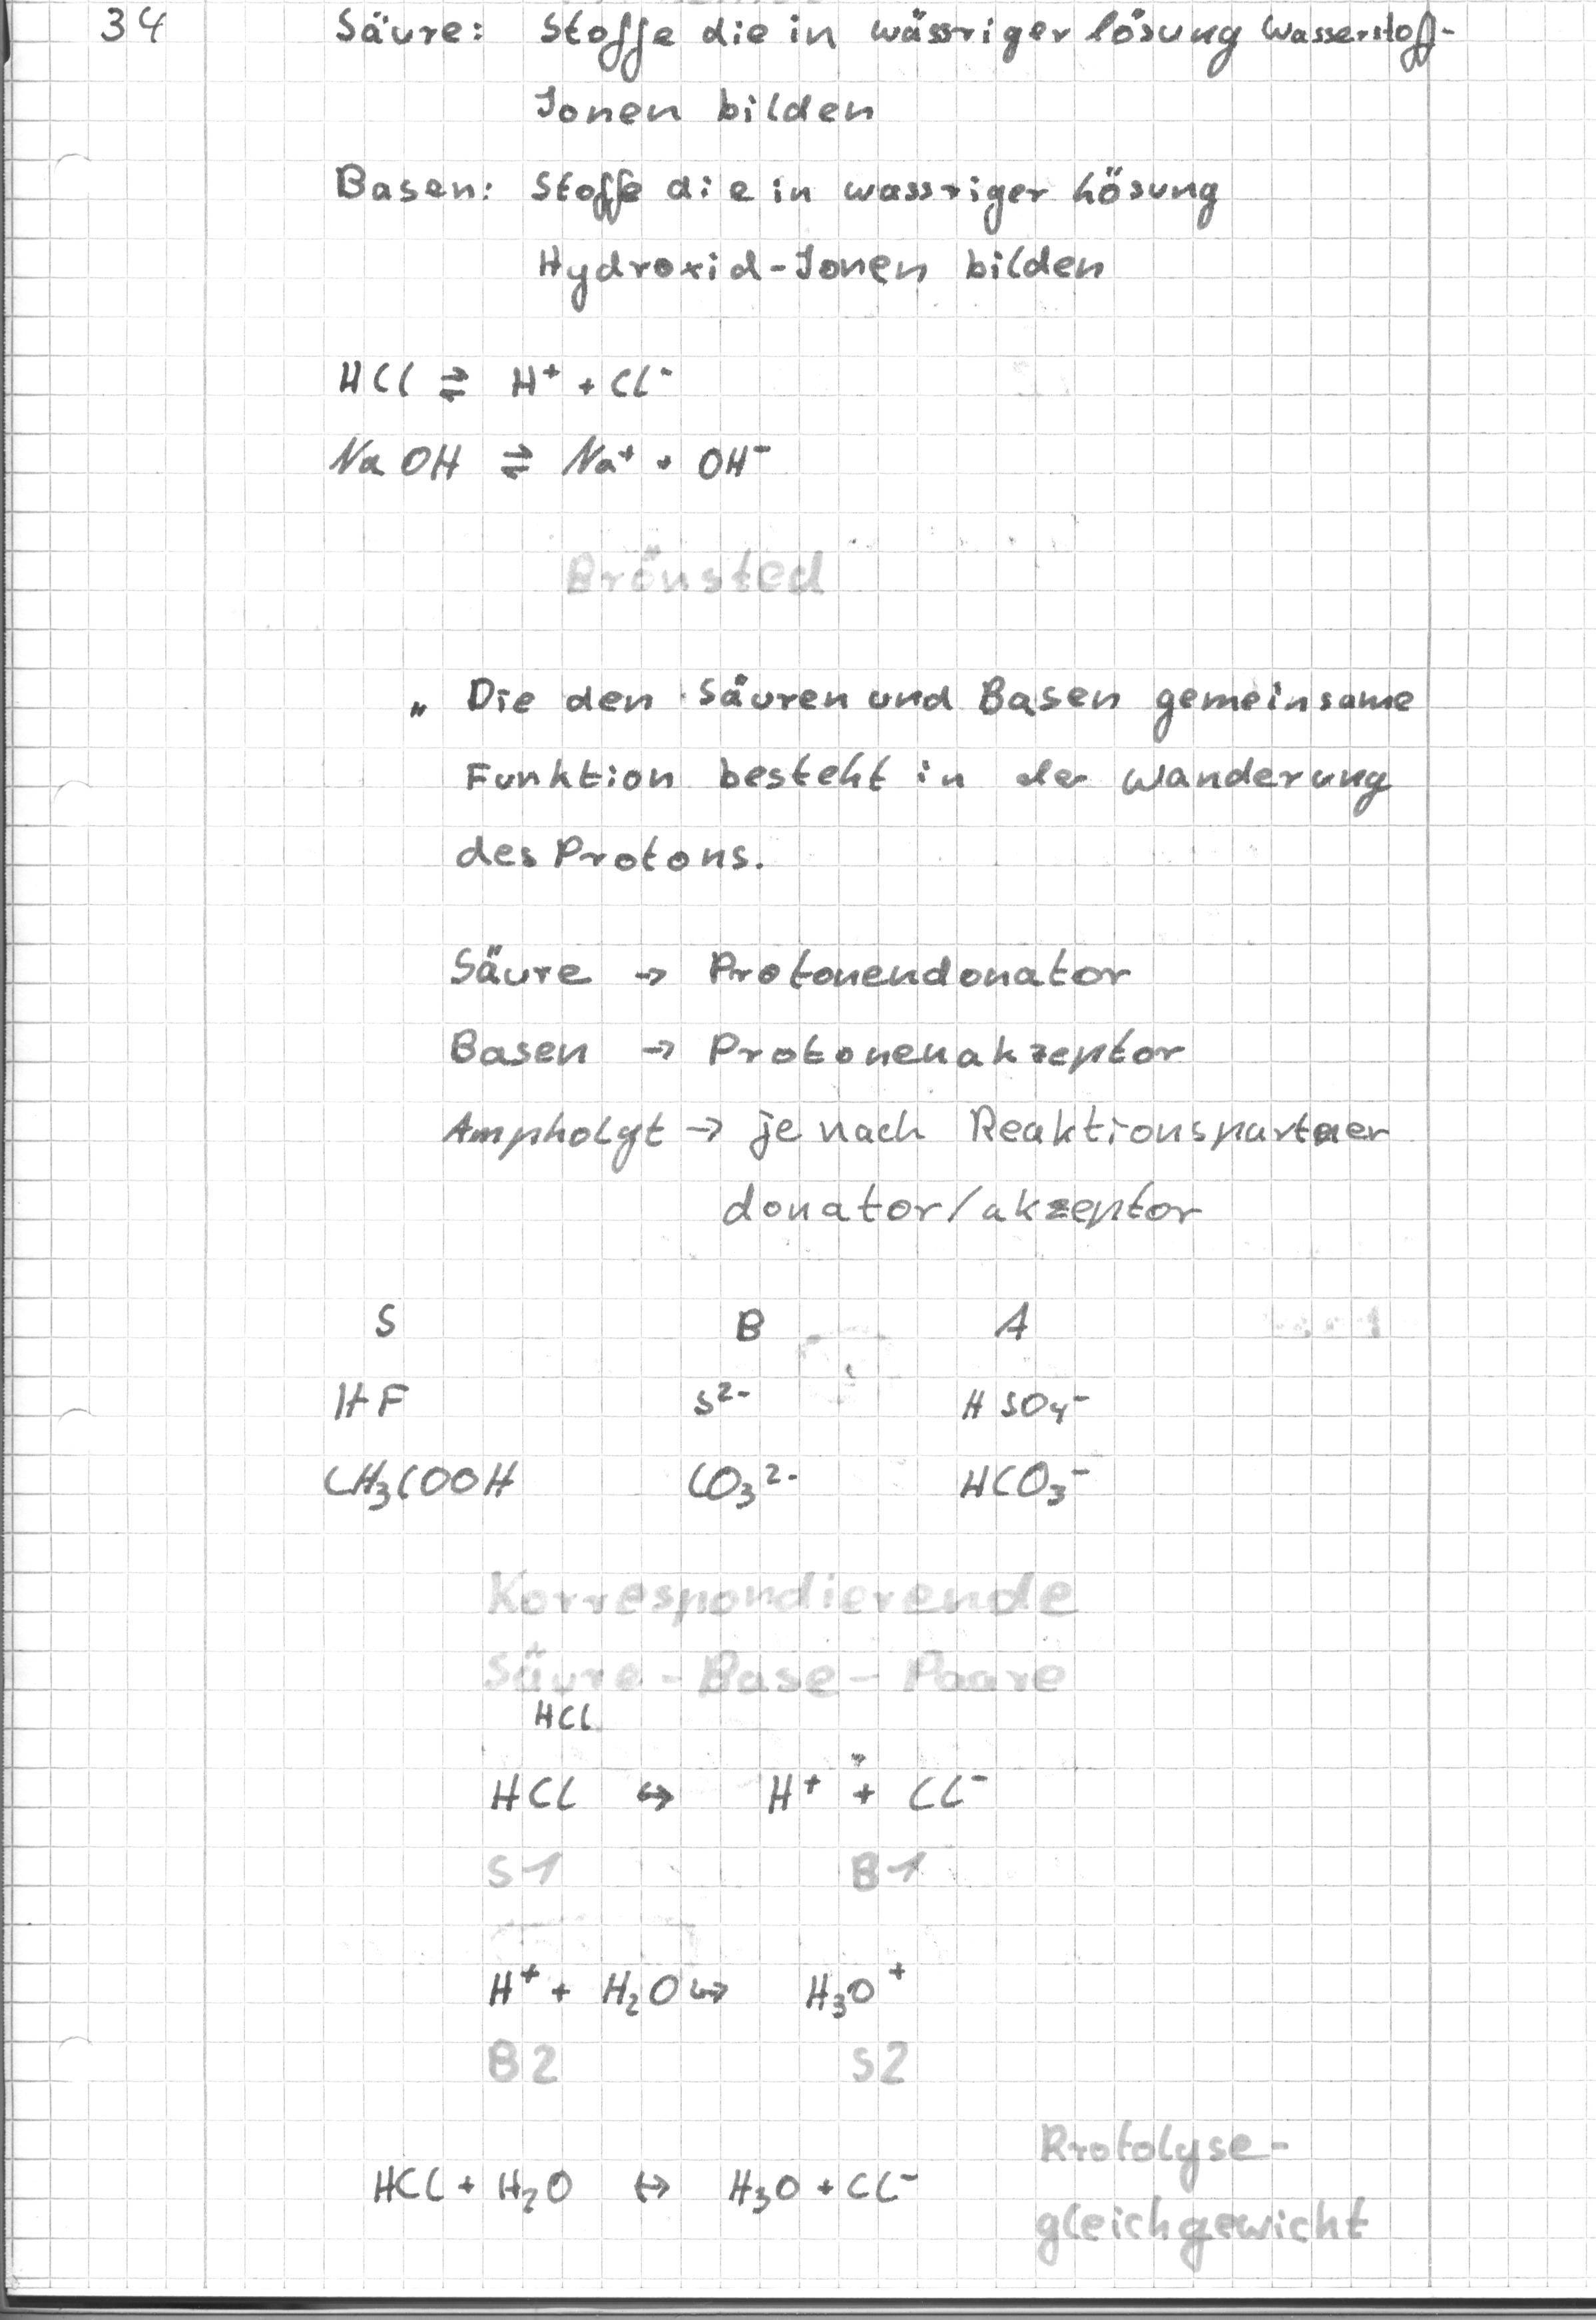 34 Säure: Stoffe die in wässriger lösung Wasserstoff-
Ionen bilden
Basen: Stoffe die in wassriger Lösung
Hydroxid-Ionen bilden
HCl ⇌ H⁺ + Cl⁻
NaOH ⇌ Na⁺ + OH⁻
Brönsted
„ Die den Säuren und Basen gemeinsame
Funktion besteht in der Wanderung
des Protons.
Säure → Protonendonator
Basen → Protonenakzeptor
Ampholyt → je nach Reaktionspartner
donator/akzeptor
S B A
HF S²⁻ HSO₄⁻
CH₃COOH CO₃²⁻ HCO₃⁻
Korrespondierende
Säure-Base-Paare
HCl
HCl ↔ H⁺ + Cl⁻
S1 B1
H⁺ + H₂O ↔ H₃O⁺
B2 S2
HCl + H₂O ↔ H₃O + Cl⁻
Protolyse-
gleichgewicht